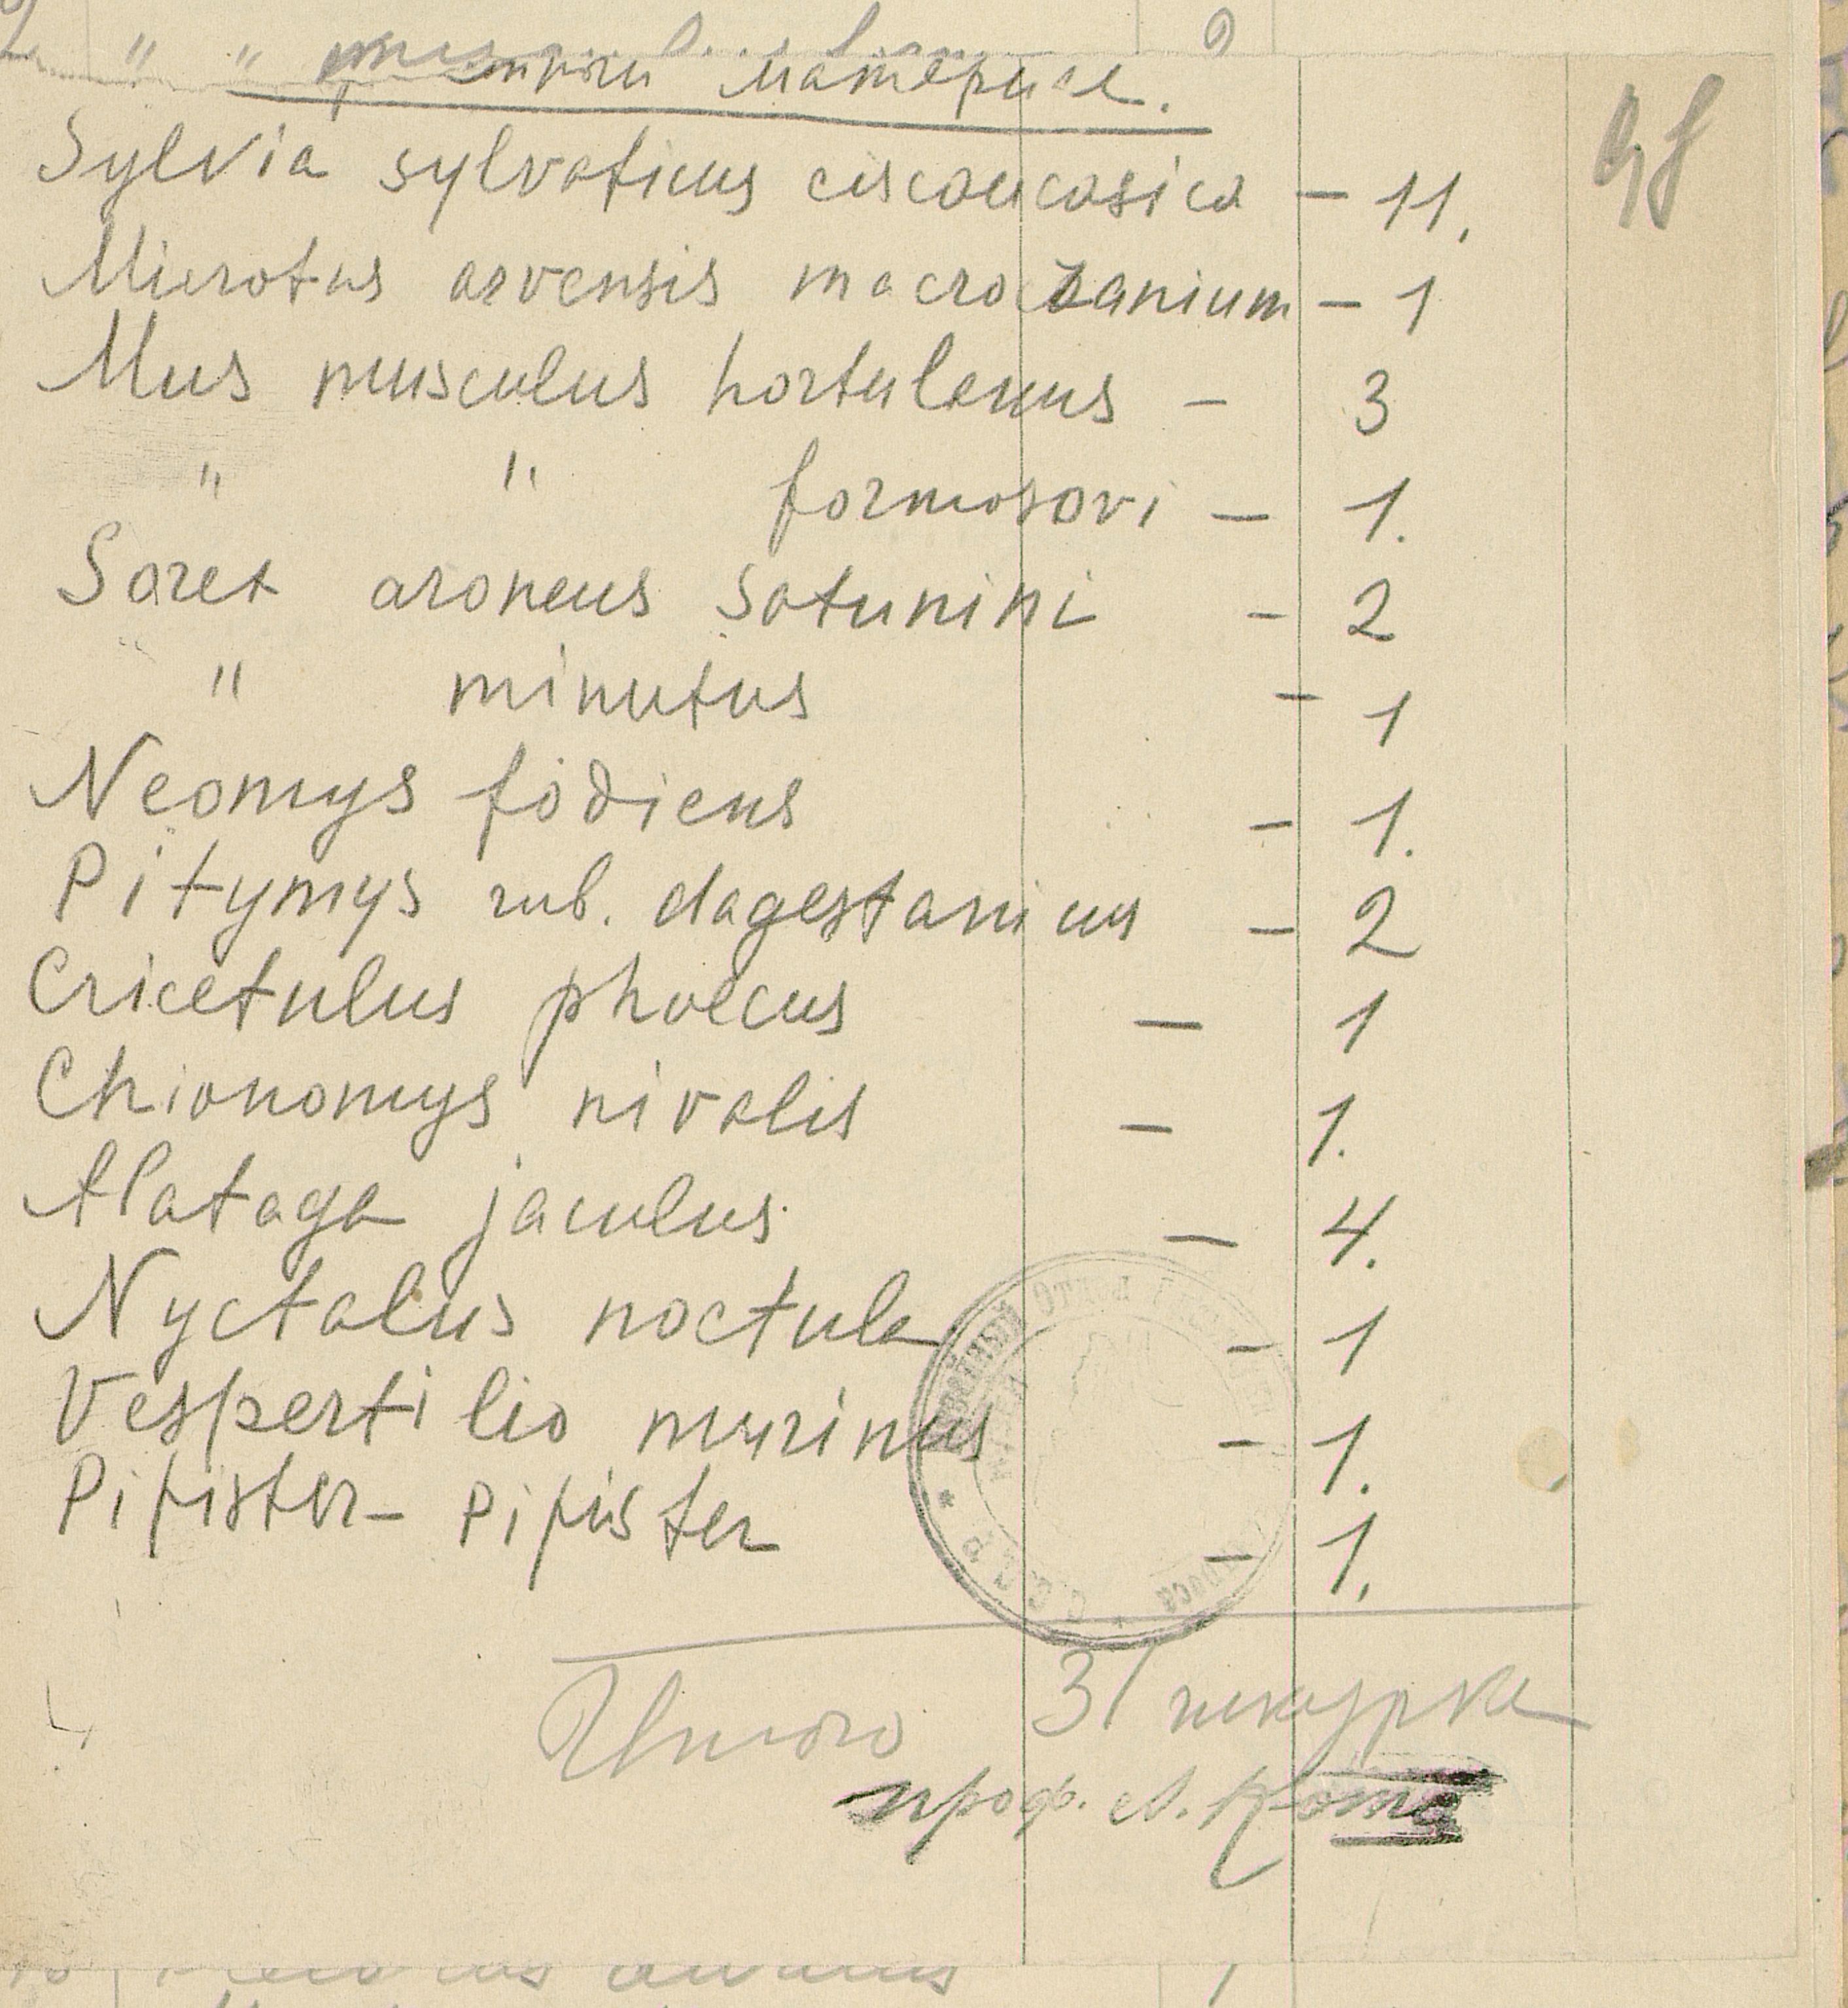 " "
материал.
Sylvia sylvaticus ciscaucasica - 11.
Microtus arvensis macrocranium - 1
Mus musculus hortulanus - 3
" " formosovi - 1.
Sorex araneus satunini - 2
" minutus - 1
Neomys fodiens - 1.
Pitymys rub. dagestanicus - 2
Cricetulus phoecus - 1
Chionomys nivalis - 1.
Alataga jaculus - 4.
Nyctalus noctula - 1
Vespertilio murinus - 1.
Pipister - pipister - 1.
Итого 31 шкурка
проф. А.